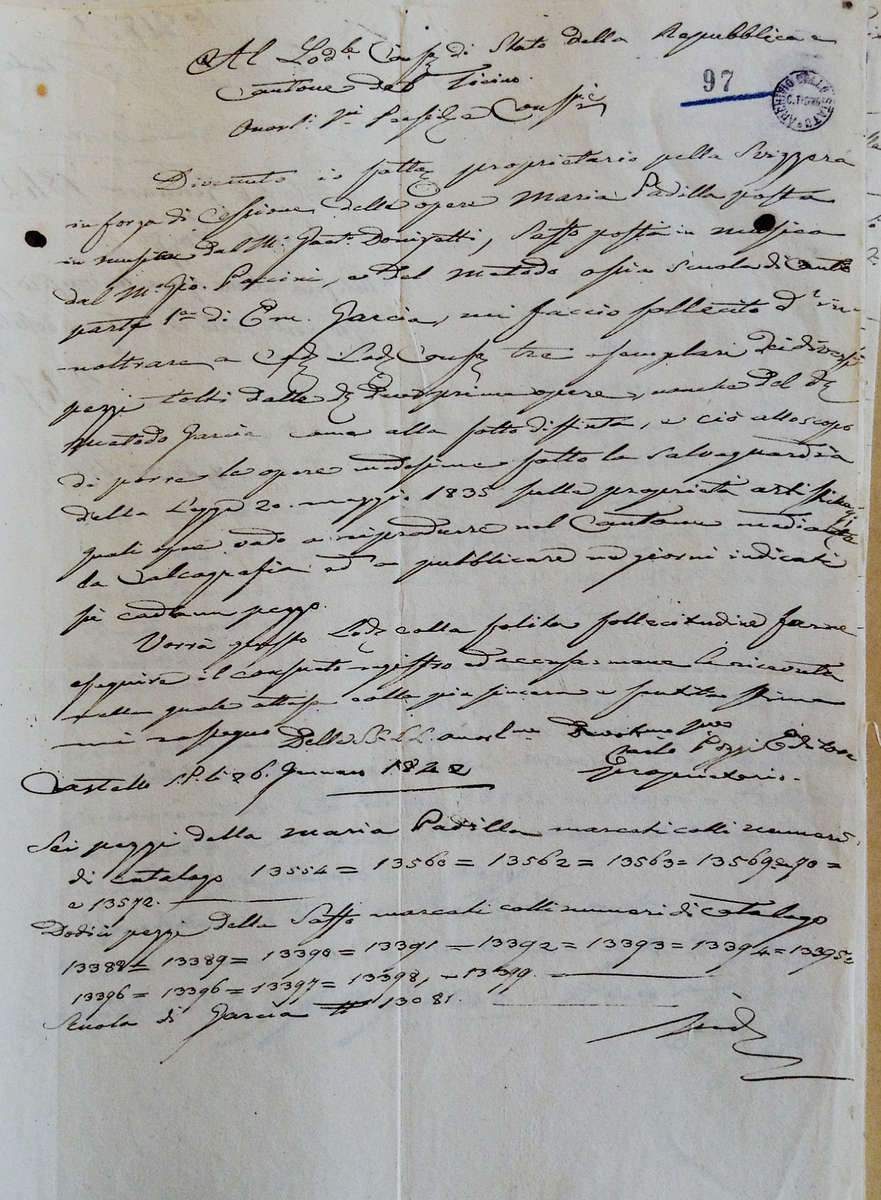 Al Lod.le Consº di Stato della Repubblica e
Cantone del Ticino.
97
ARCHIVIO DELLO STATO
Onor.i Sri Presidte e Conssri
Divenuto io sottoº proprietario nella Svizzera
in forza di Cessione delle opere Maria Padilla posta
in musica dal M.º Gaet. Donizetti, Saffo posta in musica
dal M.º Gio. Paccini, e del metodo ossia Scuola di Canto
parte 1ª di Em. Garcia, mi faccio sollecito d'in=
noltrare a Lodº Consº tre esemplari dei diversi
pezzi tolti dalle dº due prime opere, nonche del dº
metodo Garcia come alla sotto distinta, e ciò allo scopo
di porre le opere medesime sotto la salvaguardia
della Legge 20. maggio 1835 sulla proprietà artistica
quali opere vado a riprodurre nel Cantone mediante
la Calcografia ed a pubblicare ne giorni indicati
su cadaun pezzo.
Vorrà questo Lodº colla solita sollecitudine farne
eseguire il consueto registro ed accusarmene la ricevuta
nella quale attesa colla più sincera e sentita stima
mi rassegno Delle SS. LL. onorme Devotmo servo
Carlo Pozzi Editore
Castello S.P. li 26. Gennaio 1842 Proprietario.
Sei pezzi della Maria Padilla marcati colli numeri
di catalogo 13554 = 13560 = 13562 = 13563 = 13569 e 70 =
e 13572.
Dodici pezzi della Saffo marcati colli numeri di catalogo
13388 = 13389 = 13390 = 13391 = 13392 = 13393 = 13394 = 13395 =
13396 = 13396 = 13397 = 13398, = 13399.
Scuola di Garcia # 13081.